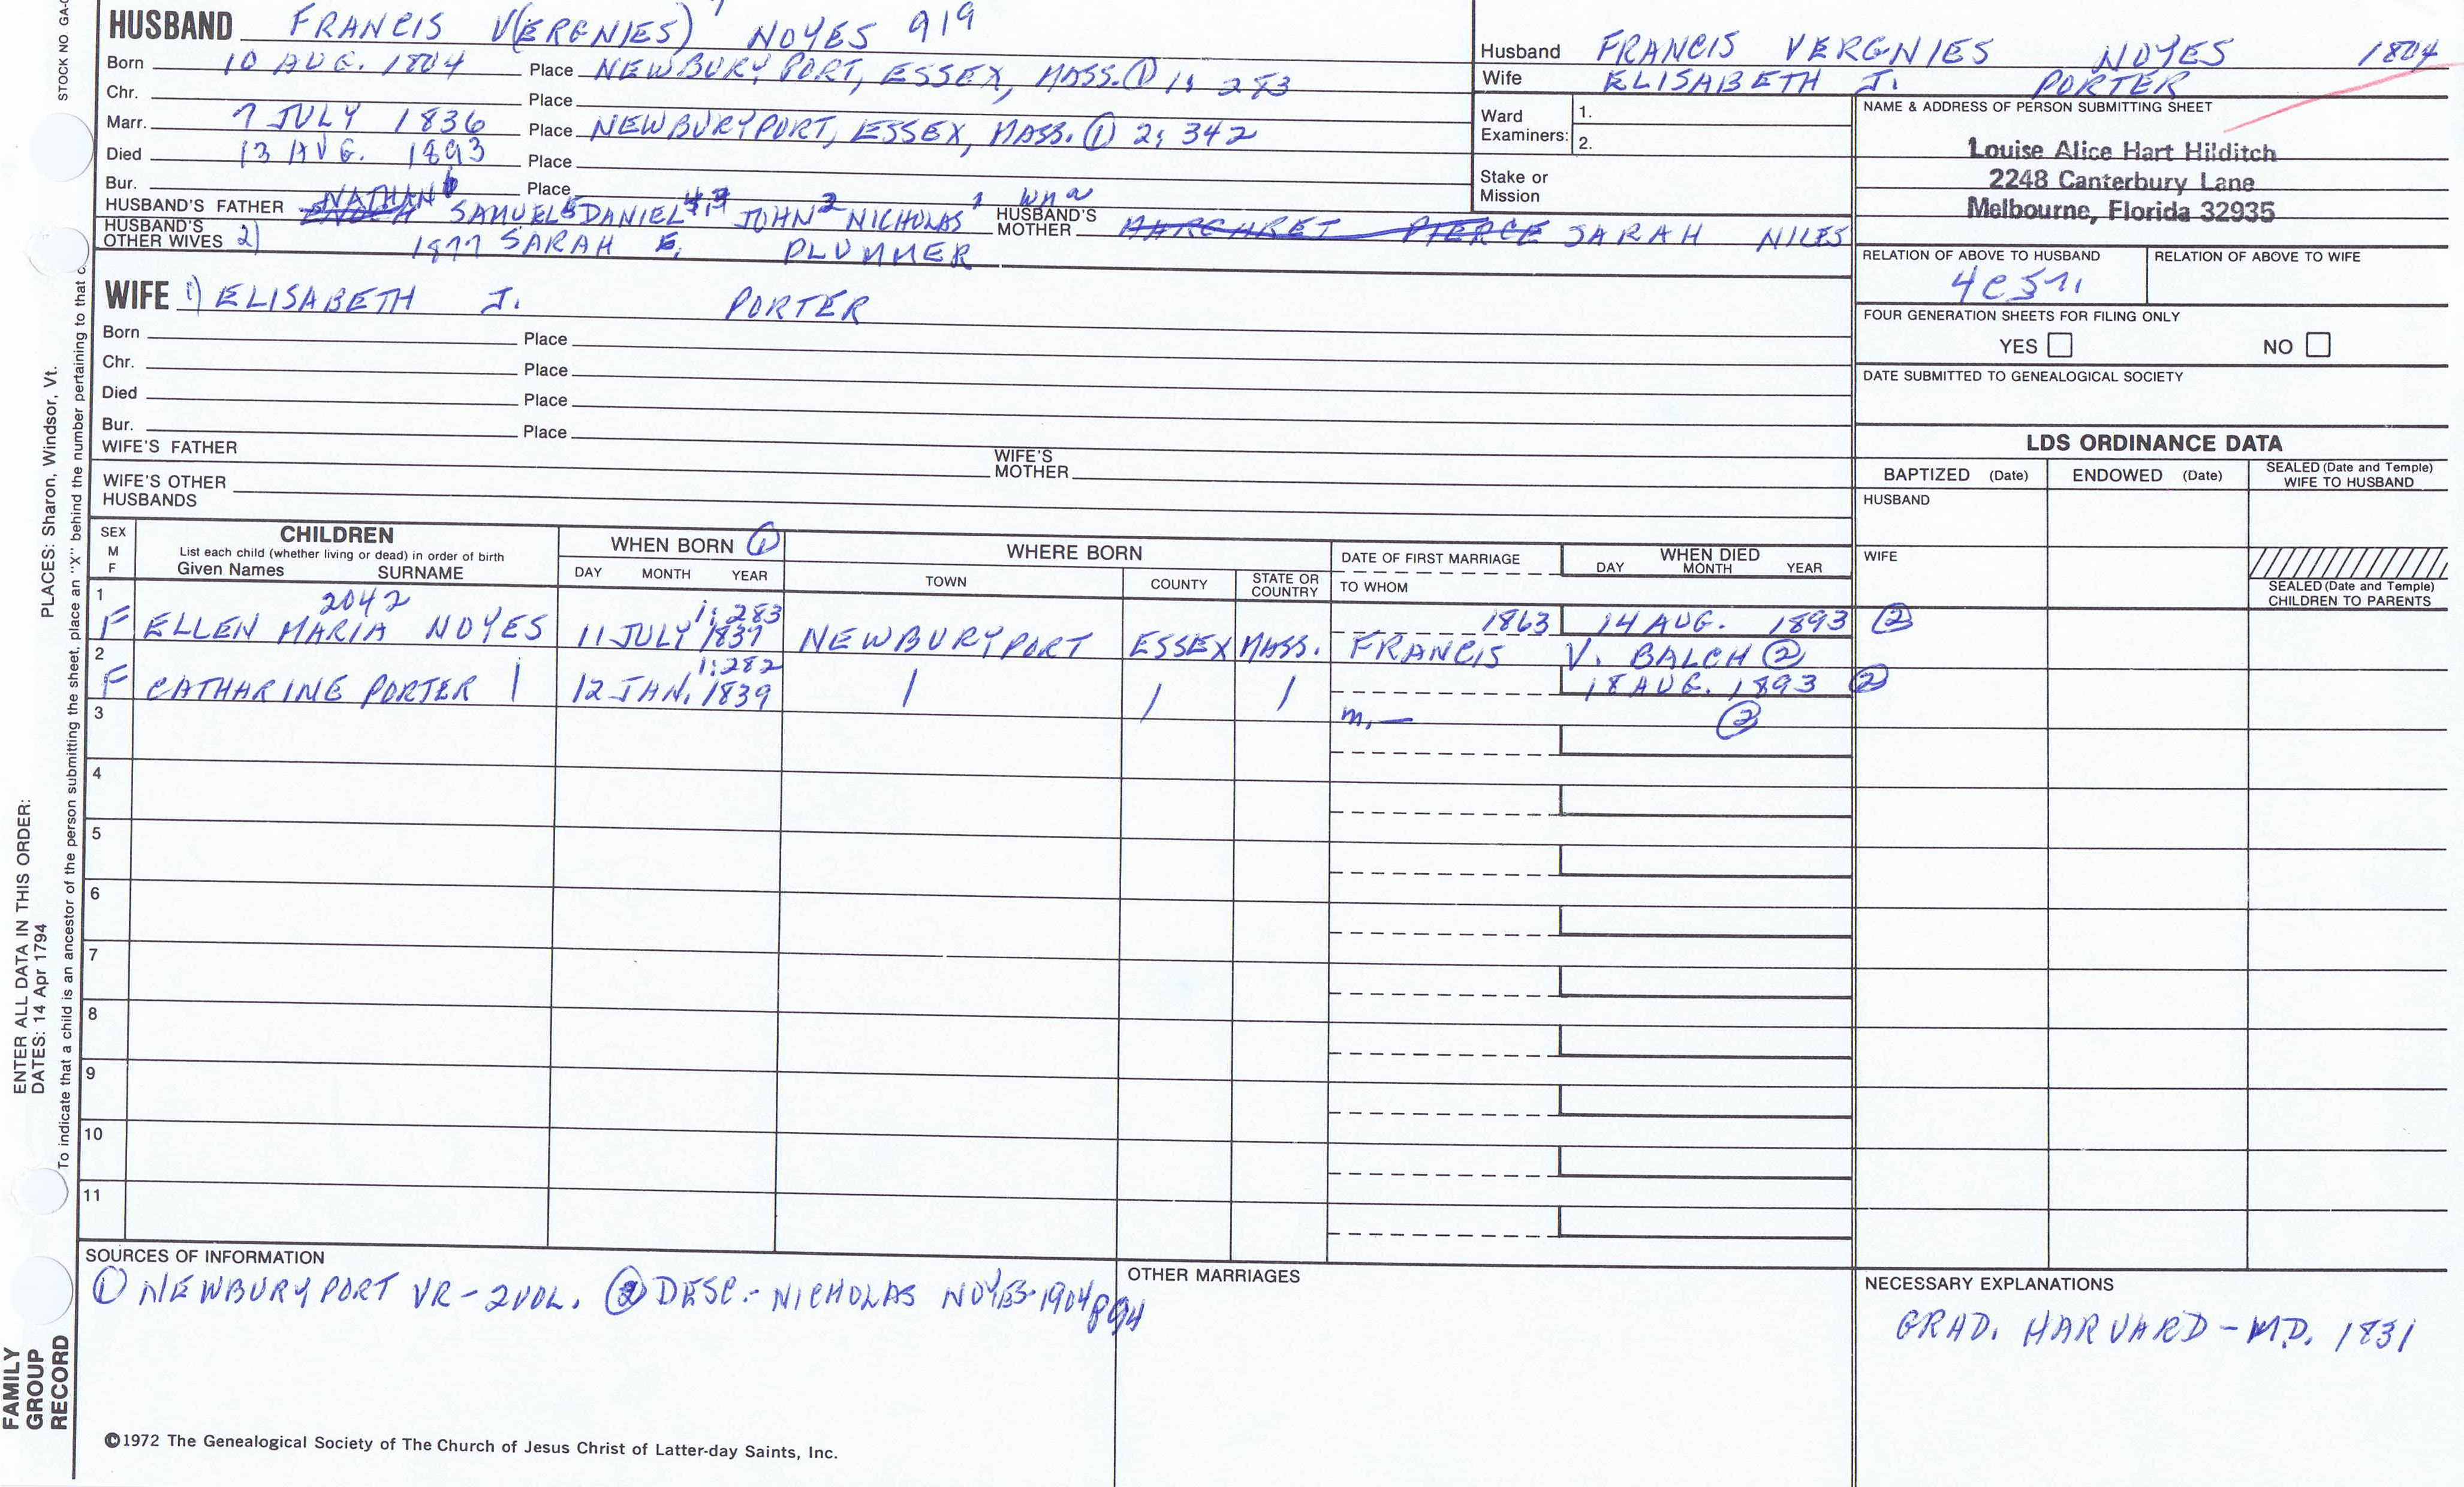 STOCK NO GA-
HUSBAND FRANCIS V(ERGNIES) NOYES 919
Born 10 AUG. 1804 Place NEWBURYPORT, ESSEX, MASS. ① 1: 283
Chr. Place
Marr. 7 JULY 1836 Place NEWBURYPORT, ESSEX, MASS. ① 2: 342
Died 13 AUG. 1893 Place
Bur. Place
HUSBAND'S FATHER NATHAN 6 SAMUEL 5 DANIEL 4,3 JOHN 2 NICHOLAS 1 HUSBAND'S MOTHER MARGARET PIERCE SARAH NILES
HUSBAND'S OTHER WIVES 2) 1877 SARAH E. PLUMMER
WIFE 1) ELISABETH J. PORTER
Born Place
Chr. Place
Died Place
Bur. Place
WIFE'S FATHER WIFE'S MOTHER
WIFE'S OTHER HUSBANDS
Husband FRANCIS VERGNIES NOYES 1804
Wife ELISABETH J. PORTER
Ward Examiners: 1.
2.
Stake or Mission
NAME & ADDRESS OF PERSON SUBMITTING SHEET
Louise Alice Hart Hilditch
2248 Canterbury Lane
Melbourne, Florida 32935
RELATION OF ABOVE TO HUSBAND RELATION OF ABOVE TO WIFE
FOUR GENERATION SHEETS FOR FILING ONLY
YES NO
DATE SUBMITTED TO GENEALOGICAL SOCIETY
LDS ORDINANCE DATA
BAPTIZED (Date) ENDOWED (Date) SEALED (Date and Temple) WIFE TO HUSBAND
HUSBAND
WIFE
SEALED (Date and Temple) CHILDREN TO PARENTS
SEX M F
CHILDREN
List each child (whether living or dead) in order of birth
Given Names SURNAME
WHEN BORN ①
DAY MONTH YEAR
WHERE BORN
TOWN COUNTY STATE OR COUNTRY
DATE OF FIRST MARRIAGE
TO WHOM
WHEN DIED
DAY MONTH YEAR
1 2042 1:283
F ELLEN MARIA NOYES 11 JULY 1837 NEWBURYPORT ESSEX MASS. 1863 14 AUG. 1893 ②
FRANCIS V. BALCH ②
2 1:282
F CATHARINE PORTER | 12 JAN. 1839 | | | 18 AUG. 1893 ②
m. — ②
3
4
5
6
7
8
9
10
11
SOURCES OF INFORMATION
① NEWBURYPORT VR - 2 VOL. ② DESC. - NICHOLAS NOYES - 1904 p94
OTHER MARRIAGES
NECESSARY EXPLANATIONS
GRAD. HARVARD - MD. 1831
©1972 The Genealogical Society of The Church of Jesus Christ of Latter-day Saints, Inc.
FAMILY GROUP RECORD
ENTER ALL DATA IN THIS ORDER:
DATES: 14 Apr 1794
PLACES: Sharon, Windsor, Vt.
To indicate that a child is an ancestor of the person submitting the sheet, place an "X" behind the number pertaining to that c